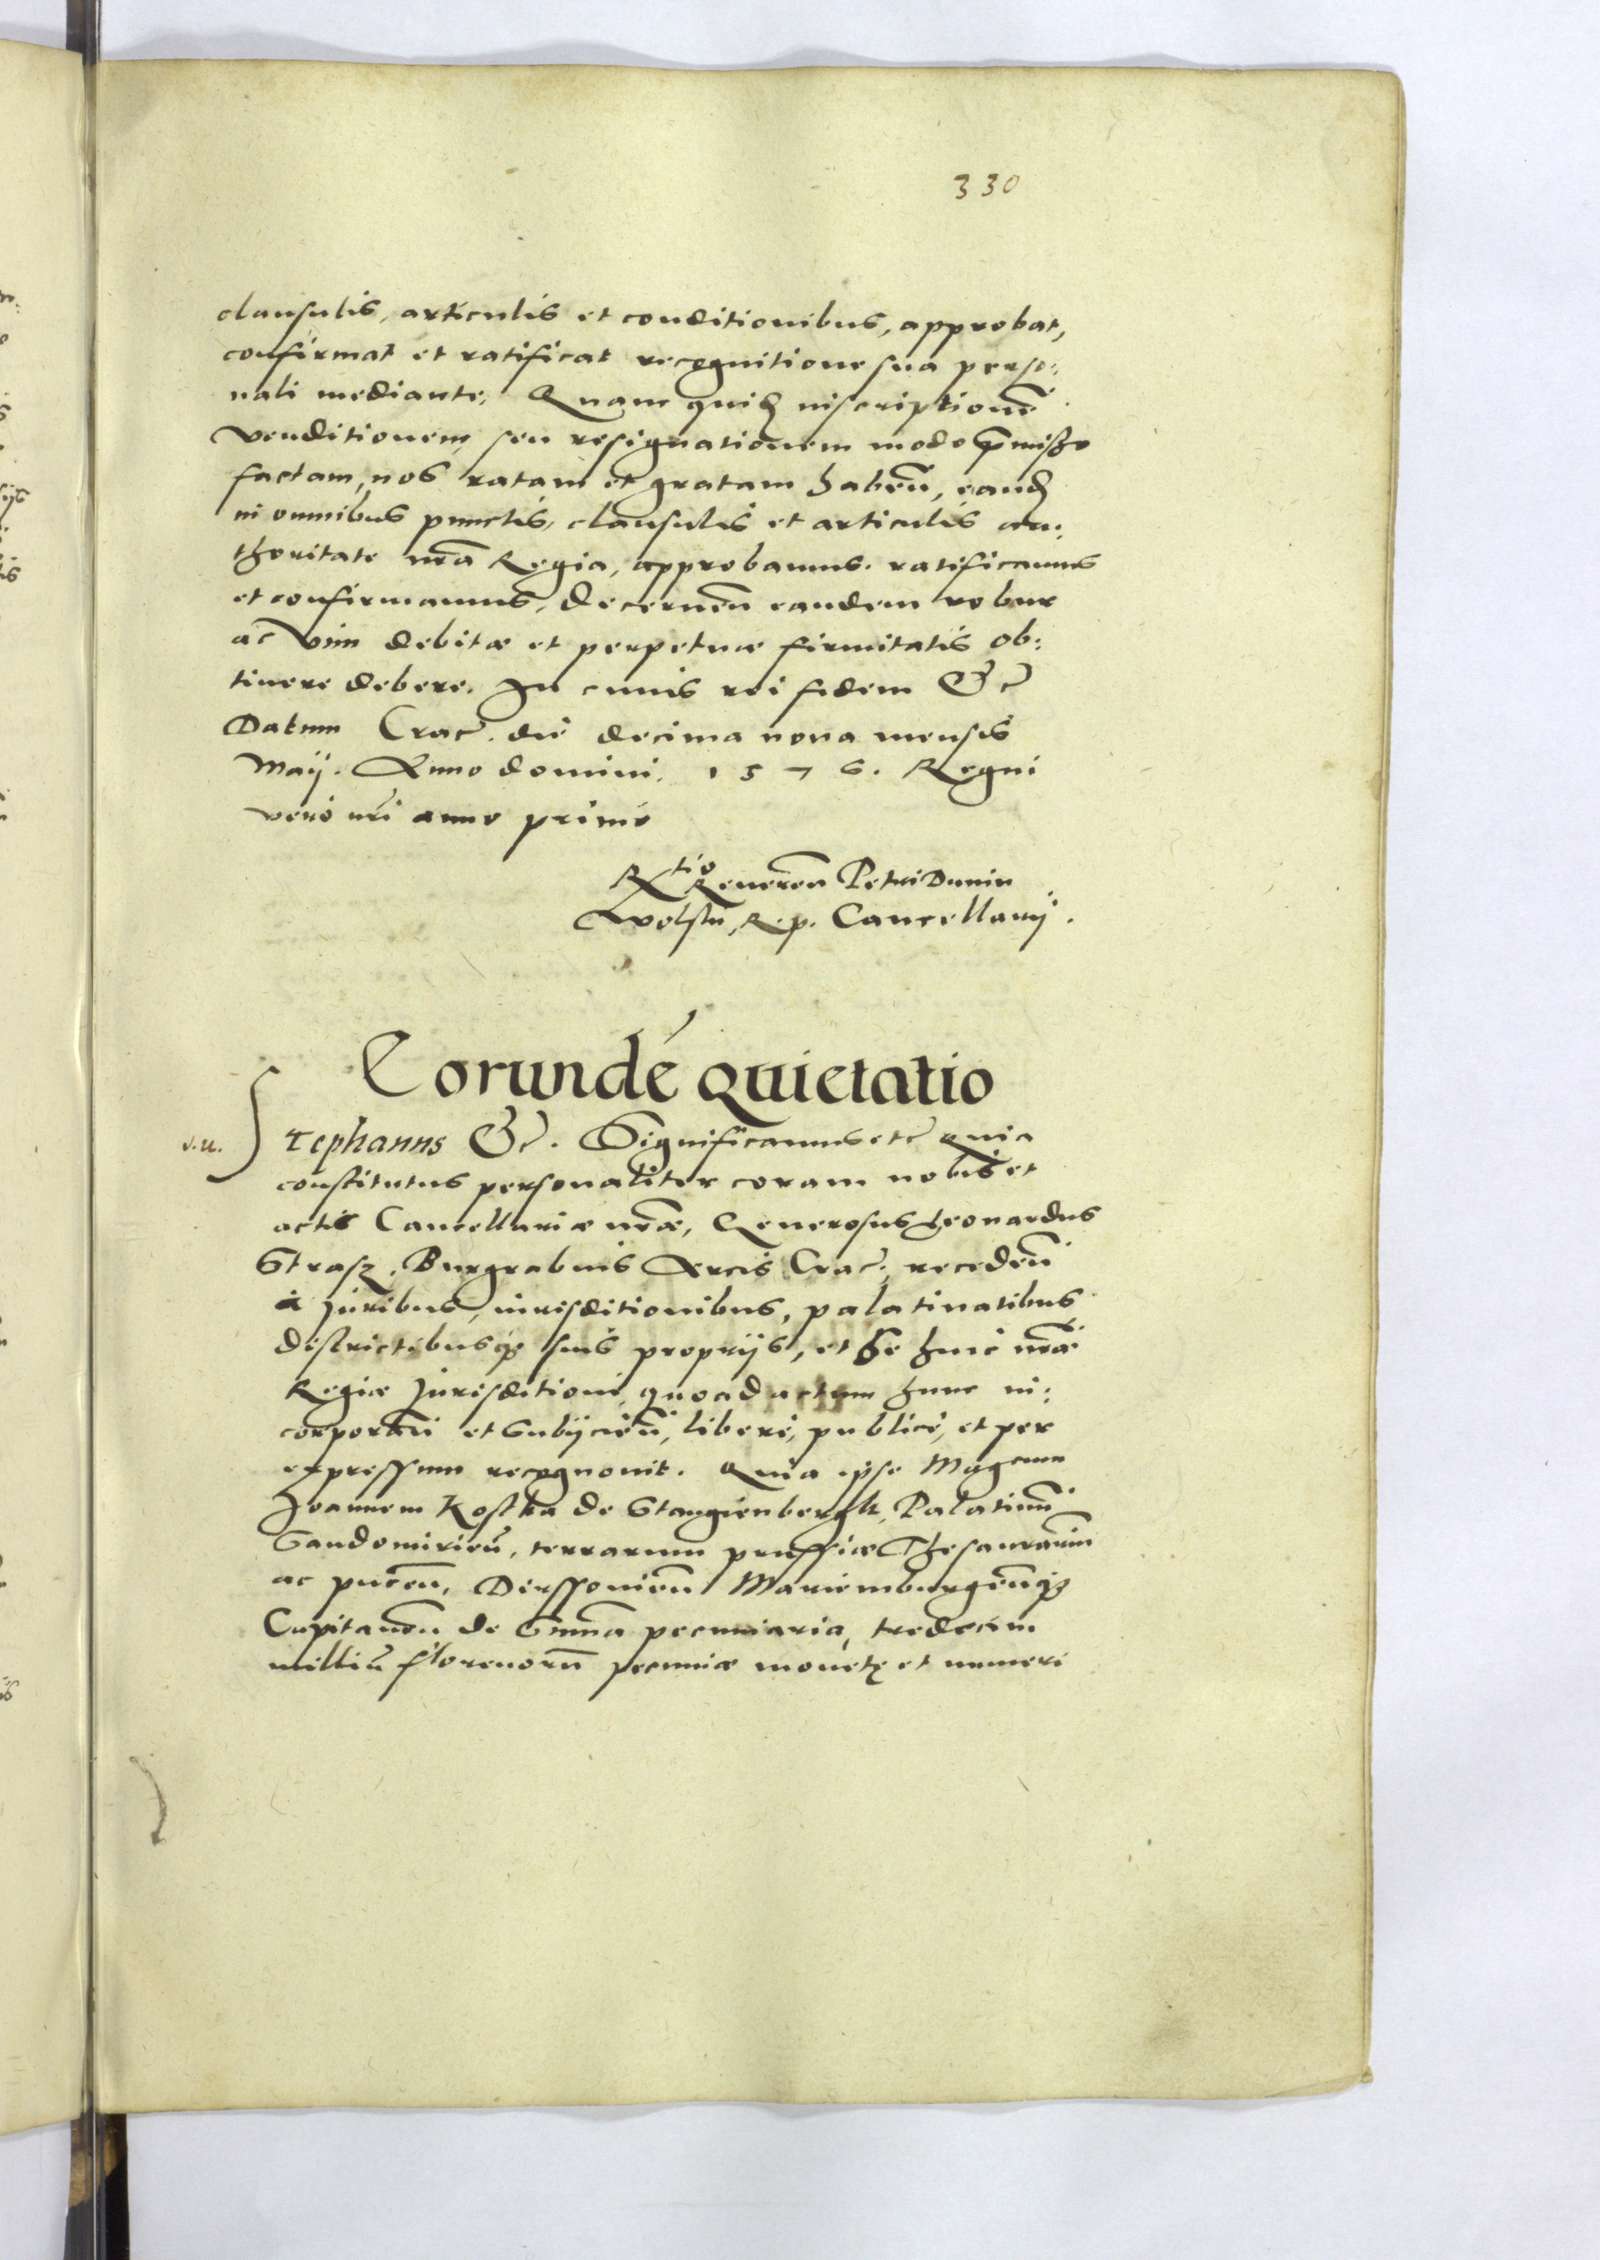 330
clausulis, articulis et conditionibus, approbat,
confirmat et ratificat recognitione sua perso:
nali mediante. Quam quid inscriptionē
venditionem, seu resignationem modo pmisso
factam, nos ratam et gratam habeñ, eand
in omnibus punctis, clausulis et articulis au:
thoritate nrā Regia, approbamus. ratificamus
et confirmamus, Decerneñ eandem robur
ac vim debitæ et perpetuæ firmitatis ob:
tinere debere. In cuius rei fidem Etc
Datum Crac. die decima nona mensis
Maij. Anno domini. 1576. Regni
vero nri anno primo
Rtio Reveren Petri Dunin
Wolski, R. p. Cancellarij.
Eorundē quietatio
v.u. Stephanus Etc. Significamus etc quia
constitutus personaliter coram nobis et
actis Cancellariæ nræ, Generosus Leonardus
Strasz. Burgrabius Arcis Crac. recedeñ
à juribus, iurisditionibus, palatinatibus
districtibusq suis proprijs, et se huic nræ
Regiæ jurisditioni quoad actum hunc in:
corporañ et subijcieñ, liberè, publicè, et per
expressum recognouit. Quia ipse Magcum
Joannem Kostka de Stangienbergk, Palatinū
Sandomirieñ, terrarum prussiæ Thesaurariū
ac puceñ, Derssovieñ Mariemburgeñq
Capitaneū de summa pecuniaria, tredecim
milliū florenorū pecuniæ monetę et numeri